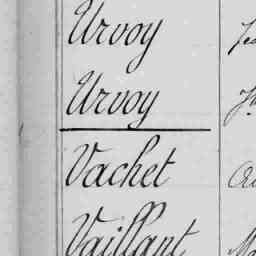 Urvoy
Urvoy
Vachet
Vaillant